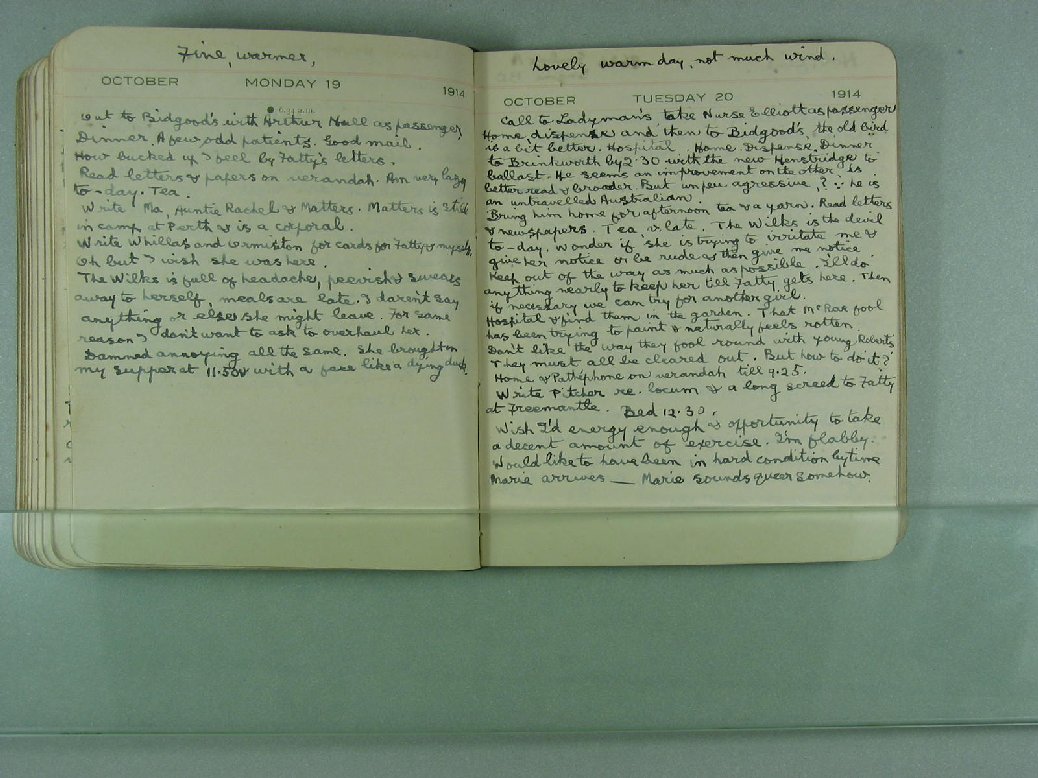 Fine, warmer,
OCTOBER MONDAY 19 1914
Out to Bidgood's with Arthur Hall as passenger,
Dinner. A few odd patients. Good mail.
How bucked up I feel by Fatty's letters.
Read letters & papers on verandah. Am very lazy
to-day. Tea.
Write Ma, Auntie Rachel & Matters. Matters is still
in camp at Perth & is a corporal.
Write Whillas and Ormiston for cards for Fatty & myself,
Oh but I wish she was here.
The Wilks is full of headaches, peevish & swears
away to herself, meals are late. I daren't say
anything or else she might leave. For same
reason I don't want to ask to overhaul her.
Damned annoying all the same. She brought in
my supper at 11.50 with a face like a dying duck.
Lovely warm day, not much wind.
OCTOBER TUESDAY 20 1914
Call to Ladyman's take Nurse Elliott as passenger
Home, dispense and then to Bidgood's, the old bird
is a bit better. Hospital. Home. Dispense. Dinner
to Brinkworth by 2.30 with the new Hensbridge to
ballast. He seems an improvement on the other, is
better read & broader. But un peu agressive,? ∵ he is
an untravelled Australian.
Bring him home for afternoon tea & a yarn. Read letters
& newspapers. Tea, late. The Wilks is the devil
to-day, wonder if she is trying to irritate me &
give her notice or be rude & then give me notice
Keep out of the way as much as possible. I'll do
anything nearly to keep her till Fatty gets here. Then
if necessary we can try for another girl.
Hospital & find them in the garden. That McRae fool
has been trying to paint & naturally feels rotten.
Don't like the way they fool round with young Roberts
They must all be cleared out. But how to do it?
Home & Pathéphone on verandah till 9.25.
Write Pitcher re. locum & a long screed to Fatty
at Freemantle. Bed 12.30.
Wish I'd energy enough & opportunity to take
a decent amount of exercise. I'm flabby.
Would like to have been in hard condition by time
Marie arrives — Marie sounds queer somehow.